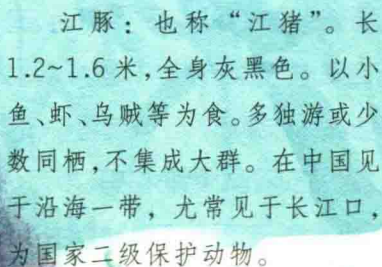 江豚：也称“江猪”。长
1.2~1.6 米,全身灰黑色。以小
鱼、虾、乌贼等为食。多独游或少
数同栖,不集成大群。在中国见
于沿海一带，尤常见于长江口,
为国家二级保护动物。